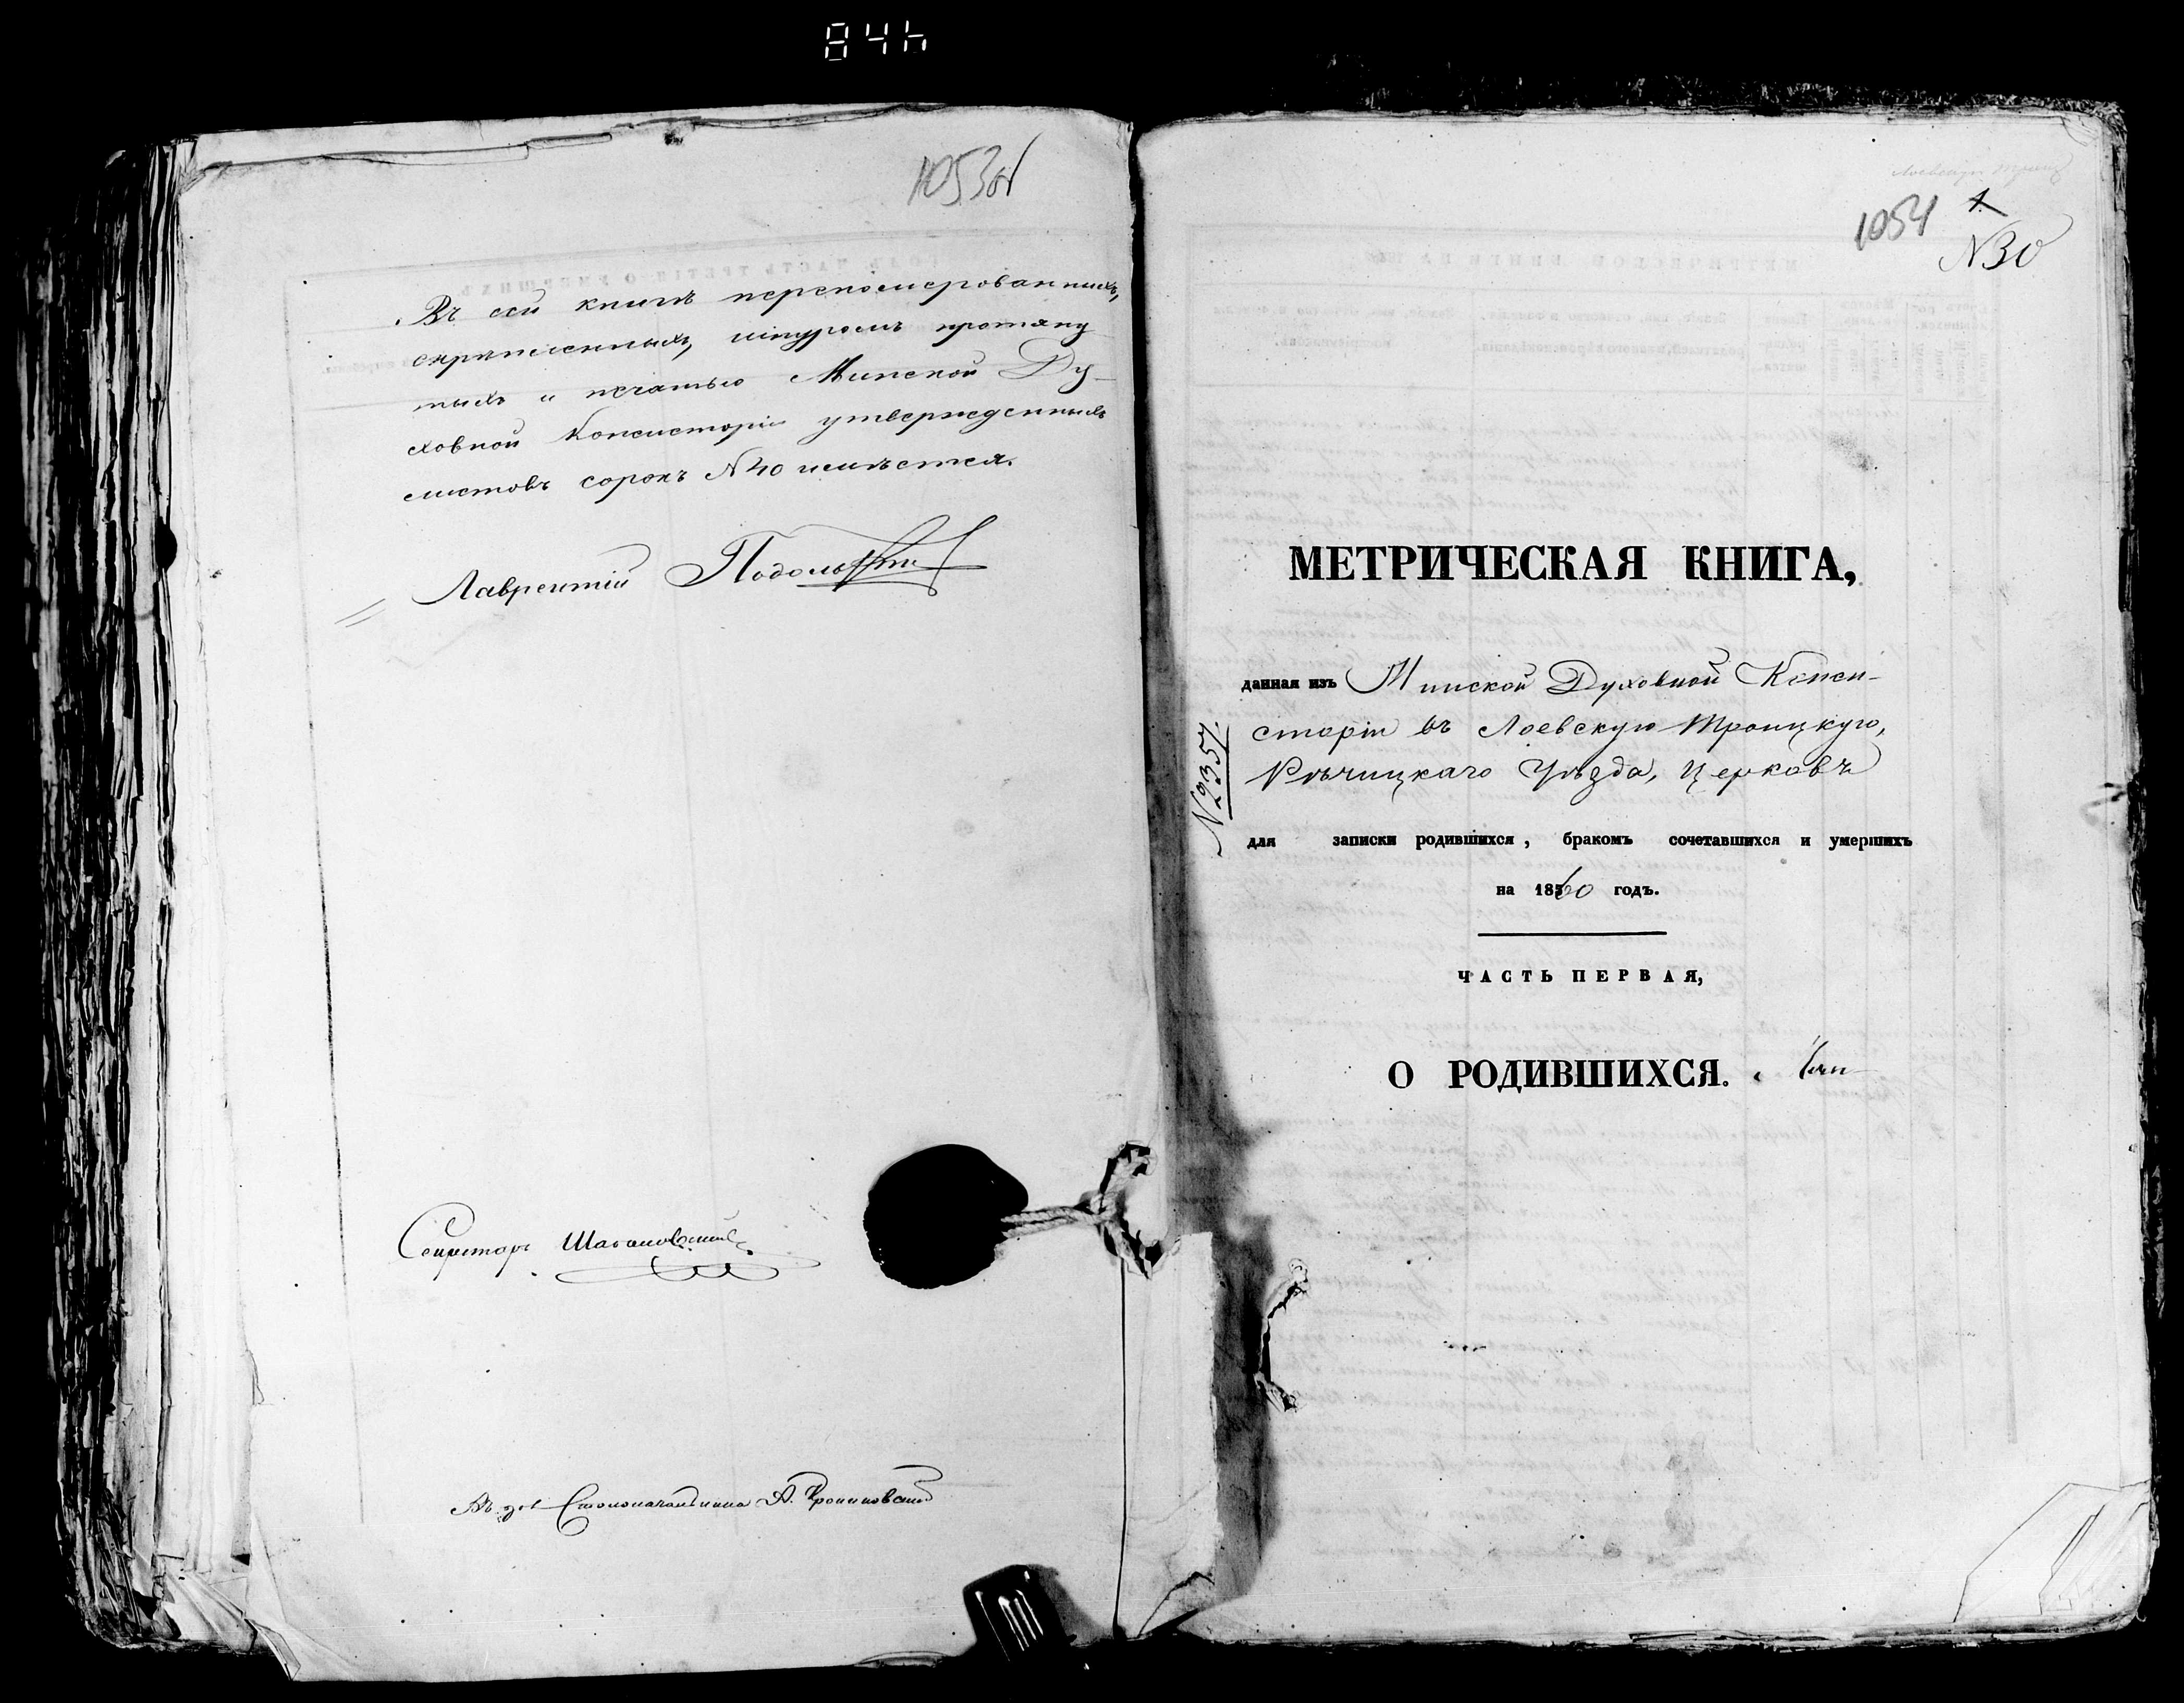 1053об
Въ сей книгѣ перономерованныхъ,
скрѣпленныхъ, шнуромъ протяну
тыхъ и печатью Минской Ду-
ховной Консисторіи утвержденныхъ
листовъ сорокъ N 40 имѣется.
Лаврентій
Секретарь
Въ Столоначальника А.
1054
1
N30
МЕТРИЧЕСКАЯ КНИГА,
данная изъ Минской Духовной Конси-
сторіи въ Лоевскую Троицкую,
Рѣчицкаго Уѣзда, Церковь
N 2357.
для записки родившихся, бракомъ сочетавшихся и умершихъ
на 1860 годъ.
ЧАСТЬ ПЕРВАЯ,
О РОДИВШИХСЯ.